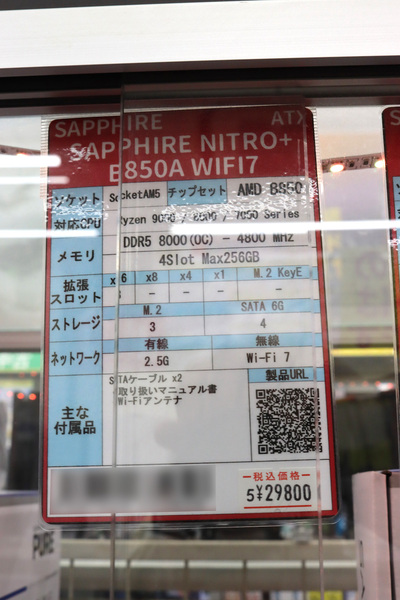 SAPPHIRE ATX
SAPPHIRE NITRO+
B850A WIFI7
ソケット SocketAM5 チップセット AMD B850
対応CPU Ryzen 9000 / 8000 / 7000 Series
メモリ DDR5 8000(OC) - 4800 MHz
4Slot Max256GB
拡張スロット x16 x8 x4 x1 M.2 KeyE
3 - - - -
ストレージ M.2 SATA 6G
3 4
ネットワーク 有線 無線
2.5G Wi-Fi 7
主な付属品 SATAケーブル x2 製品URL
取り扱いマニュアル書
Wi-Fiアンテナ
税込価格
5¥29800
PURE